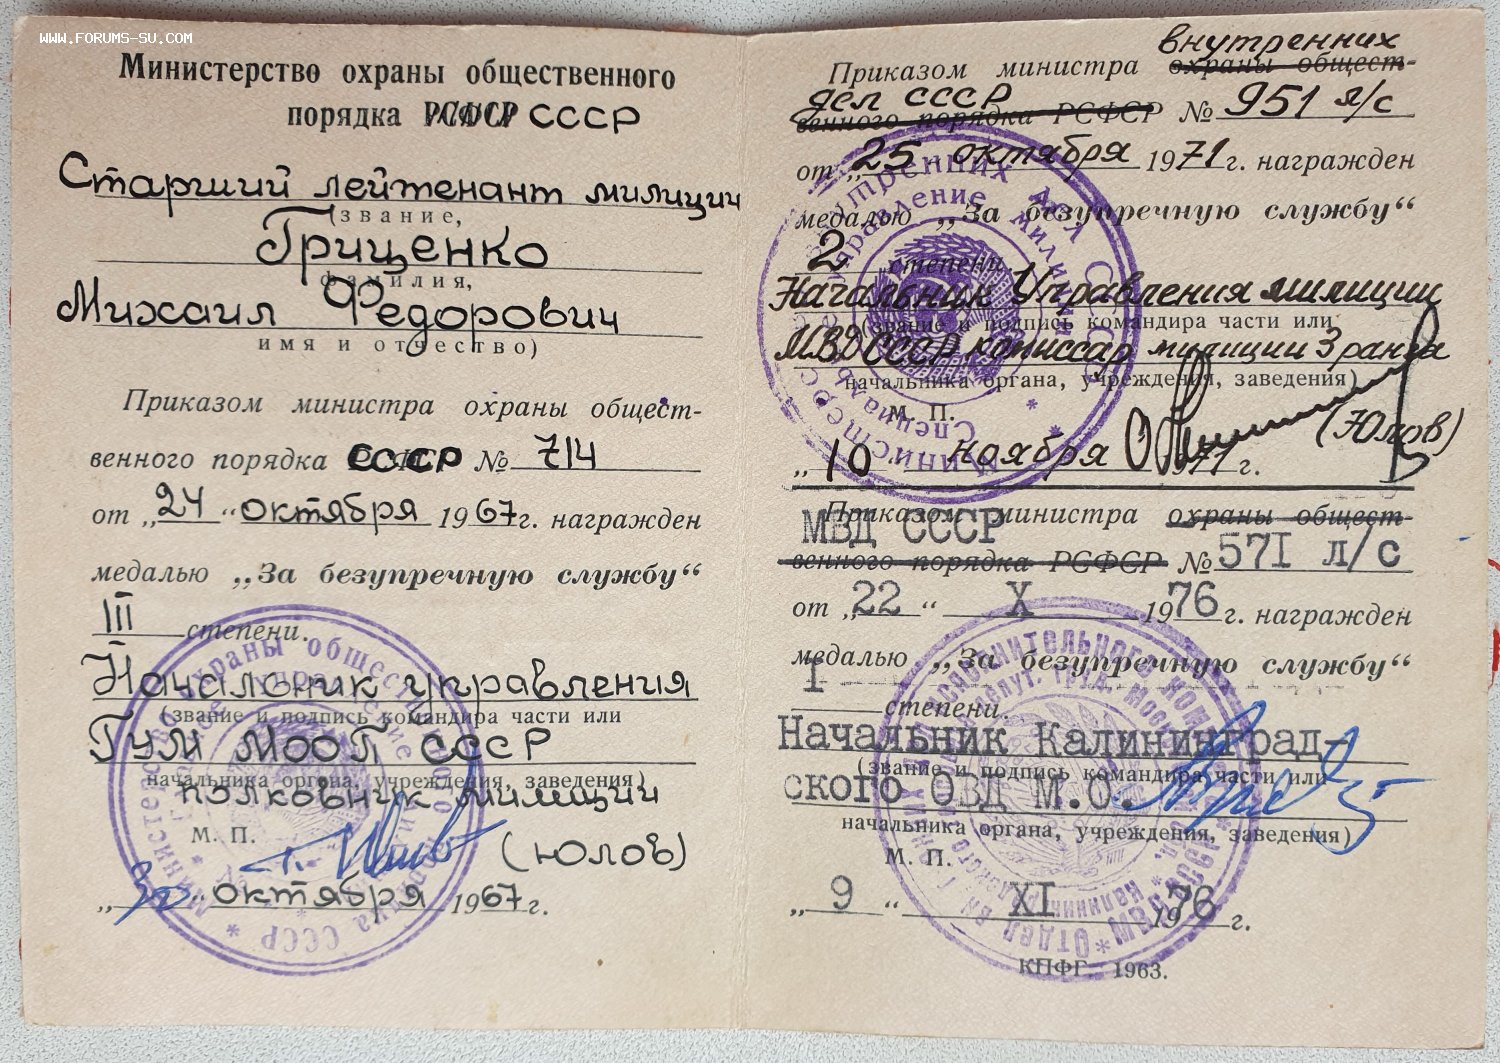 WWW.FORUMS-SU.COM
Министерство охраны общественного
порядка РСФСР СССР
Старший лейтенант милиции
(звание,
Гриценко
фамилия,
Михаил Федорович
имя и отчество)
Приказом министра охраны общест-
венного порядка СССР № 714
от „24“ октября 1967г. награжден
медалью „За безупречную службу“
III степени.
Начальник управления
(звание и подпись командира части или
ГУМ МООП СССР
начальника органа, учреждения, заведения)
полковник милиции
М. П.
(Юлов)
„30“ октября 1967г.
внутренних
Приказом министра охраны общест-
дел СССР
венного порядка РСФСР № 951 л/с
от „25“ октября 1971г. награжден
медалью „За безупречную службу“
2 степени.
Начальник Управления милиции
(звание и подпись командира части или
МВД СССР комиссар милиции 3 ранга
начальника органа, учреждения, заведения)
М. П.
(Юлов)
„10“ ноября 1971г.
Приказом министра охраны общест-
МВД СССР
венного порядка РСФСР № 571 л/с
от „22“ X 1976г. награжден
медалью „За безупречную службу“
I
степени.
Начальник Калининград-
(звание и подпись командира части или
ского ОВД М.О.
начальника органа, учреждения, заведения)
М. П.
„9“ XI 1976г.
КПФГ. 1963.